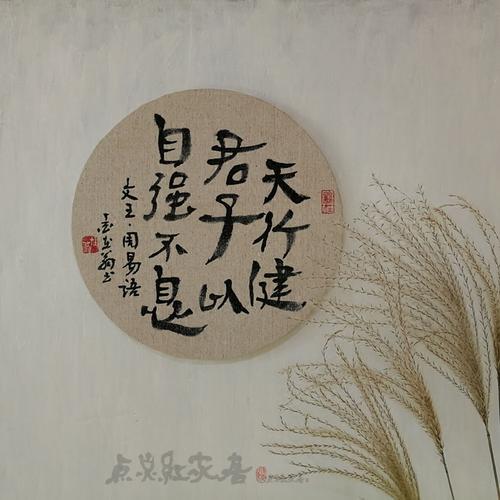 天行健
君子以
自强不息
文王·周易语